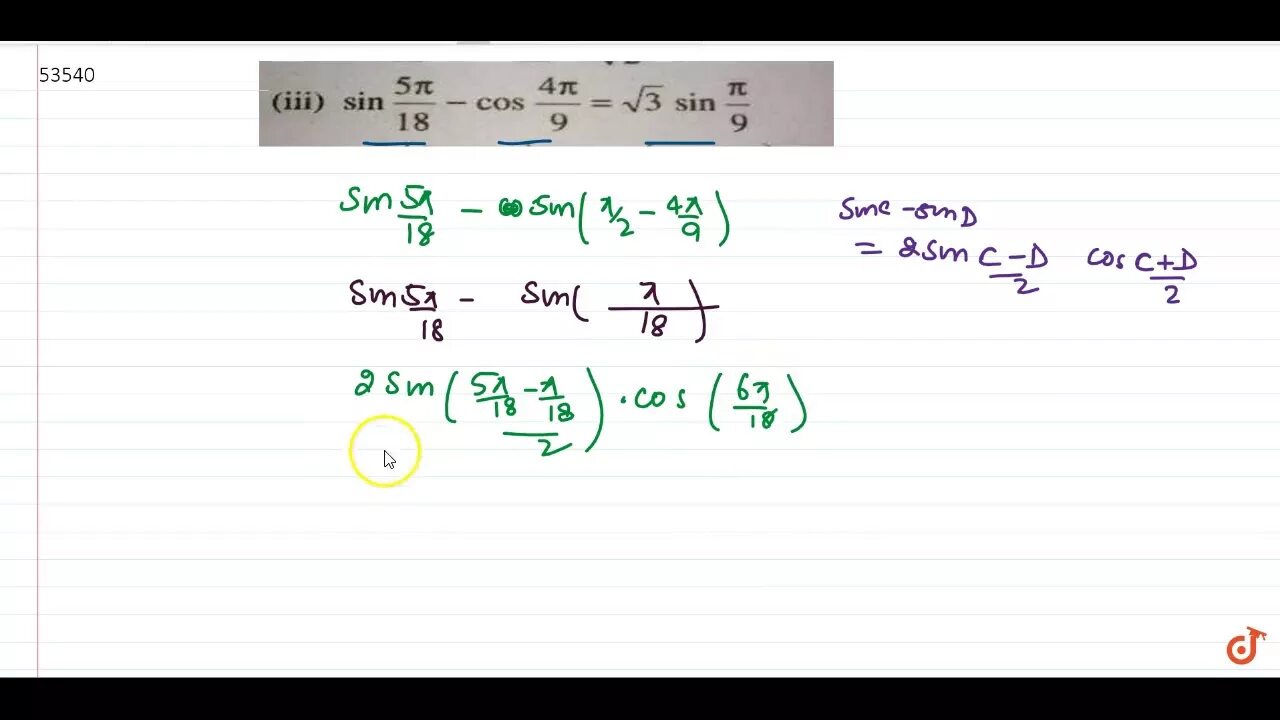 53540
(iii) sin 5π/18 − cos 4π/9 = √3 sin π/9
Sin 5π/18 − Sin(π/2 − 4π/9)
Sinc − sin D
= 2 Sin C−D/2 cos C+D/2
Sin 5π/18 − Sin(π/18)
2 Sin((5π/18 − π/18)/2) · cos(6π/18)